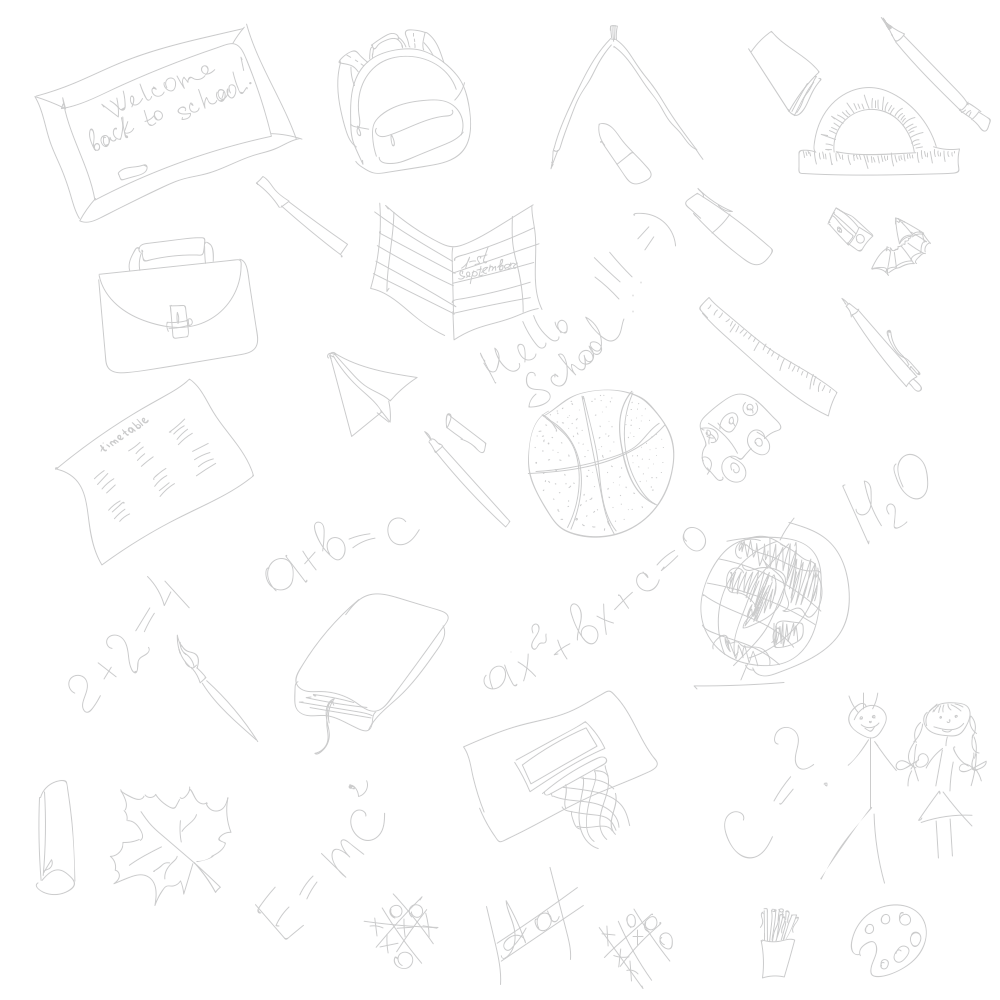 Welcome
back to school!
1-st
september
Hello
School !!! =)
timetable
a+b=c
H2O
2×2=4
ax²+bx+c=0
C=?
E=mc²